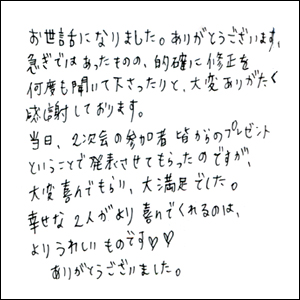 お世話になりました。ありがとうございます、
急ぎではあったものの、的確に修正を
何度も聞いて下さったりと、大変ありがたく
感謝しております。
当日、2次会の参加者 皆からのプレゼント
ということで発表させてもらったのですが、
大変喜んでもらい、大満足でした。
幸せな2人がより喜んでくれるのは、
よりうれしいものです♡♡
ありがとうございました。